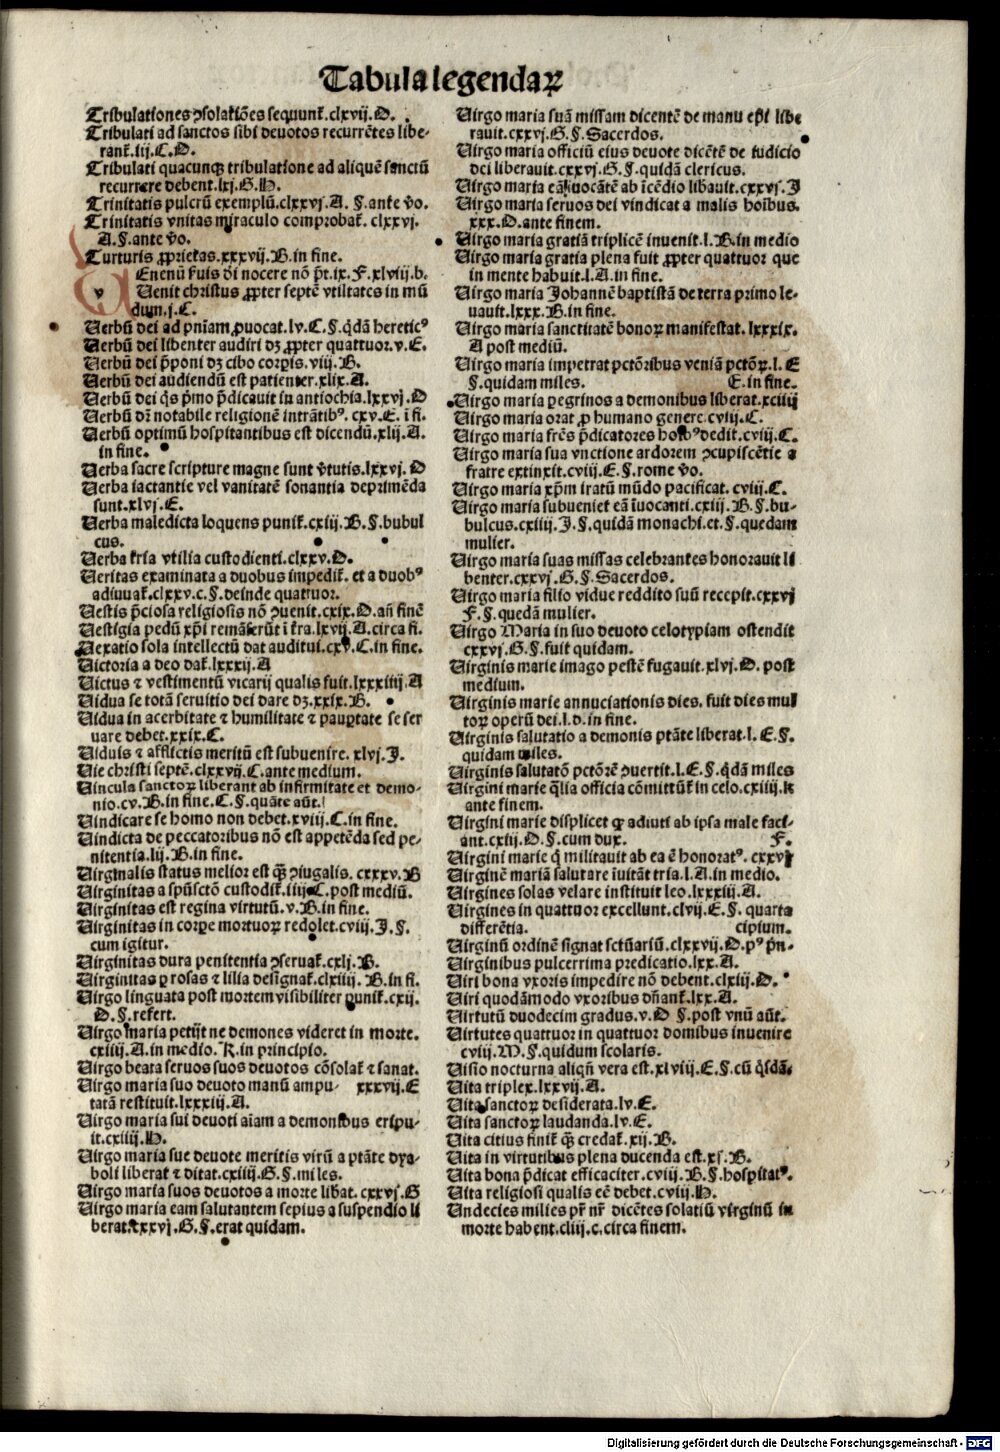 Tabula legendaꝝ
Tribulationes ꝯsolatiões sequunt̃. clxvij. D.
Tribulati ad sanctos sibi deuotos recurrẽtes libe-
rant̃. iij. C. D.
Tribulati quacunqꝫ tribulatione ad aliquẽ sanctũ
recurrere debent. lxj. G. H.
Trinitatis pulcrũ exemplũ. clxxvj. A. §. ante ṽo.
Trinitatis vnitas miraculo comprobat̃. clxxvj.
A. §. ante ṽo.
Turturis ꝓprietas. xxxvij. B. in fine.
Uenenũ
v Uenit christus ꝓpter septẽ vtilitates in mũ
dum. j. C.
Uerbũ dei ad pniam ꝓuocat. lv. C. §. q̃dã heretic⁹
Uerbũ dei libenter audiri dꝫ ꝓpter quattuor. v. E.
Uerbũ dei p̃poni dꝫ cibo corpis. viij. B.
Uerbũ dei audiendũ est patienter. xlix. A.
Uerbũ dei q̃s p̃mo p̃dicauit in antiochia. lxxvj. D
Uerbũ dñi notabile religionẽ intrãtib⁹. cxv. E. ĩ fi.
Uerbũ optimũ hospitantibus est dicendũ. xlij. A.
in fine.
Uerba sacre scripture magne sunt ṽtutis. lxxvj. D
Uerba iactantie vel vanitatẽ sonantia deprimẽda
sunt. xlvj. E.
Uerba maledicta loquens punit̃. cxiij. B. §. bubul
cus.
Uerba tria vtilia custodienti. clxxv. D.
Ueritas examinata a duobus impedit̃. et a duob⁹
adiuuat̃. clxxv. c. §. deinde quattuor.
Uestis p̃ciosa religiosis nõ ꝯuenit. cxix. D. añ finẽ
Uestigia pedũ xp̃i remãserũt ĩ t̃ra. lxvij. A. circa fi.
Uexatio sola intellectũ dat auditui. cxv. C. in fine.
Uictoria a deo dat̃. lxxxij. A
Uictus ⁊ vestimentũ vicarij qualis fuit. lxxxiiij. A
Uidua se totã seruitio dei dare dꝫ. xxix. B.
Uidua in acerbitate ⁊ humilitate ⁊ paupertate se ser
uare debet. xxix. C.
Uiduis ⁊ afflictis meritũ est subuenire. xlvj. J.
Uie christi septẽ. clxxvij. C. ante medium.
Uincula sanctoꝝ liberant ab infirmitate et demo-
nio. cv. B. in fine. C. §. quãte aũt.
Uindicare se homo non debet. xviij. C. in fine.
Uindicta de peccatoribus nõ est appetẽda sed pe-
nitentia. lij. B. in fine.
Uirginalis status melior est q̃ꝫ ꝯiugalis. cxxxv. B
Uirginitas a spũsctõ custodit̃. iiij. C. post mediũ.
Uirginitas est regina virtutũ. v. B. in fine.
Uirginitas in corpe mortuoꝝ redolet. cviij. J. §.
cum igitur.
Uirginitas dura penitentia ꝯseruat̃. cxlj. B.
Uirginitas ꝑ rosas ⁊ lilia designat̃. clxiij. B. in fi.
Uirgo linguata post mortem visibiliter punit̃. cxij.
D. §. refert.
Uirgo maria petijt ne demones videret in morte.
cxiiij. A. in medio. K. in principio.
Uirgo beata seruos suos deuotos cõsolat̃ ⁊ sanat.
Uirgo maria suo deuoto manũ ampu- xxxvij. E
tatã restituit. lxxxiij. A.
Uirgo maria sui deuoti aĩam a demonibus eripu-
it. cxiiij. H.
Uirgo maria sue deuote meritis virũ a p̃tãte dya-
boli liberat ⁊ ditat. cxiiij. G. §. miles.
Uirgo maria suos deuotos a morte libat. cxxvj. G
Uirgo maria eam salutantem sepius a suspendio li
berat. cxxvj. G. §. erat quidam.
Uirgo maria suã missam dicentẽ de manu ep̃i libe
rauit. cxxvj. G. §. Sacerdos.
Uirgo maria officiũ eius deuote dicẽtẽ de iudicio
dei liberauit. cxxvj. G. §. quidã clericus.
Uirgo maria eã ĩuocãtẽ ab ĩcẽdio libauit. cxxvj. J
Uirgo maria seruos dei vindicat a malis hoĩbus.
xxx. D. ante finem.
Uirgo maria gratiã triplicẽ inuenit. l. B. in medio
Uirgo maria gratia plena fuit ꝓpter quattuor que
in mente habuit. l. A. in fine.
Uirgo maria Johannẽ baptistã de terra primo le-
uauit. lxxx. B. in fine.
Uirgo maria sanctitatẽ bonoꝝ manifestat. lxxxix.
A post mediũ.
Uirgo maria impetrat pctõribus veniã pctõꝝ. l. E
§. quidam miles. E. in fine.
Uirgo maria peregrinos a demonibus liberat. xciiij
Uirgo maria orat ꝓ humano genere. cviij. C.
Uirgo maria fr̃es p̃dicatores dedit. cviij. C.
Uirgo maria sua vnctione ardorem ꝯcupiscẽtie a
fratre extinxit. cviij. E. §. rome ṽo.
Uirgo maria xp̃m iratũ mũdo pacificat. cviij. C.
Uirgo maria subueniet eã ĩuocanti. cxiij. B. §. bu-
bulcus. cxiiij. J. §. quidã monachi. et. §. quedam
mulier.
Uirgo maria suas missas celebrantes honorauit li
benter. cxxvj. G. §. Sacerdos.
Uirgo maria filio vidue reddito suũ recepit. cxxvj
F. §. quedã mulier.
Uirgo Maria in suo deuoto celotypiam ostendit
cxxvj. G. §. fuit quidam.
Uirginis marie imago pestẽ fugauit. xlvj. D. post
medium.
Uirginis marie annuciationis dies. fuit dies mul
toꝝ operũ dei. l. d. in fine.
Uirginis salutatio a demonis p̃tãte liberat. l. E. §.
quidam miles.
Uirginis salutatõ pctõrẽ ꝯuertit. l. E. §. q̃dã miles
Uirgini marie q̃lia officia cõmittũt̃ in celo. cxiiij. k
ante finem.
Uirgini marie displicet ꝙ adiuti ab ipsa male faci-
ant. cxiij. D. §. cum dux. F.
Uirgini marie q̃ militauit ab ea ẽ honorat⁹. cxxvj
Uirginẽ mariã salutare ĩuitãt tria. l. A. in medio.
Uirgines solas velare instituit leo. lxxxiij. A.
Uirgines in quattuor excellunt. clvij. E. §. quarta
differẽtia. cipium.
Uirginũ ordinẽ signat sctũariũ. clxxvij. D. p⁹ p̃n-
Uirginibus pulcerrima predicatio. lxx. A.
Uiri bona vxoris impedire nõ debent. clxiij. D.
Uiri quodãmodo vxoribus dñant̃. lxx. A.
Uirtutũ duodecim gradus. v. D §. post vnũ aũt.
Uirtutes quattuor in quattuor domibus inuenire
cviij. M. §. quidum scolaris.
Uisio nocturna aliqñ vera est. xlviij. E. §. cũ q̃sdã.
Uita triplex. lxxvij. A.
Uita sanctoꝝ desiderata. lv. E.
Uita sanctoꝝ laudanda. lv. E.
Uita citius finit̃ q̃ꝫ credat̃. xij. B.
Uita in virtutibus plena ducenda est. xj. B.
Uita bona p̃dicat efficaciter. cviij. B. §. hospitat⁹.
Uita religiosi qualis eẽ debet. cviij. H.
Undecies milies pr̃ nr̃ dicẽtes solatiũ virginũ in
morte habent. cliij. c. circa finem.
Digitalisierung gefördert durch die Deutsche Forschungsgemeinschaft - DFG